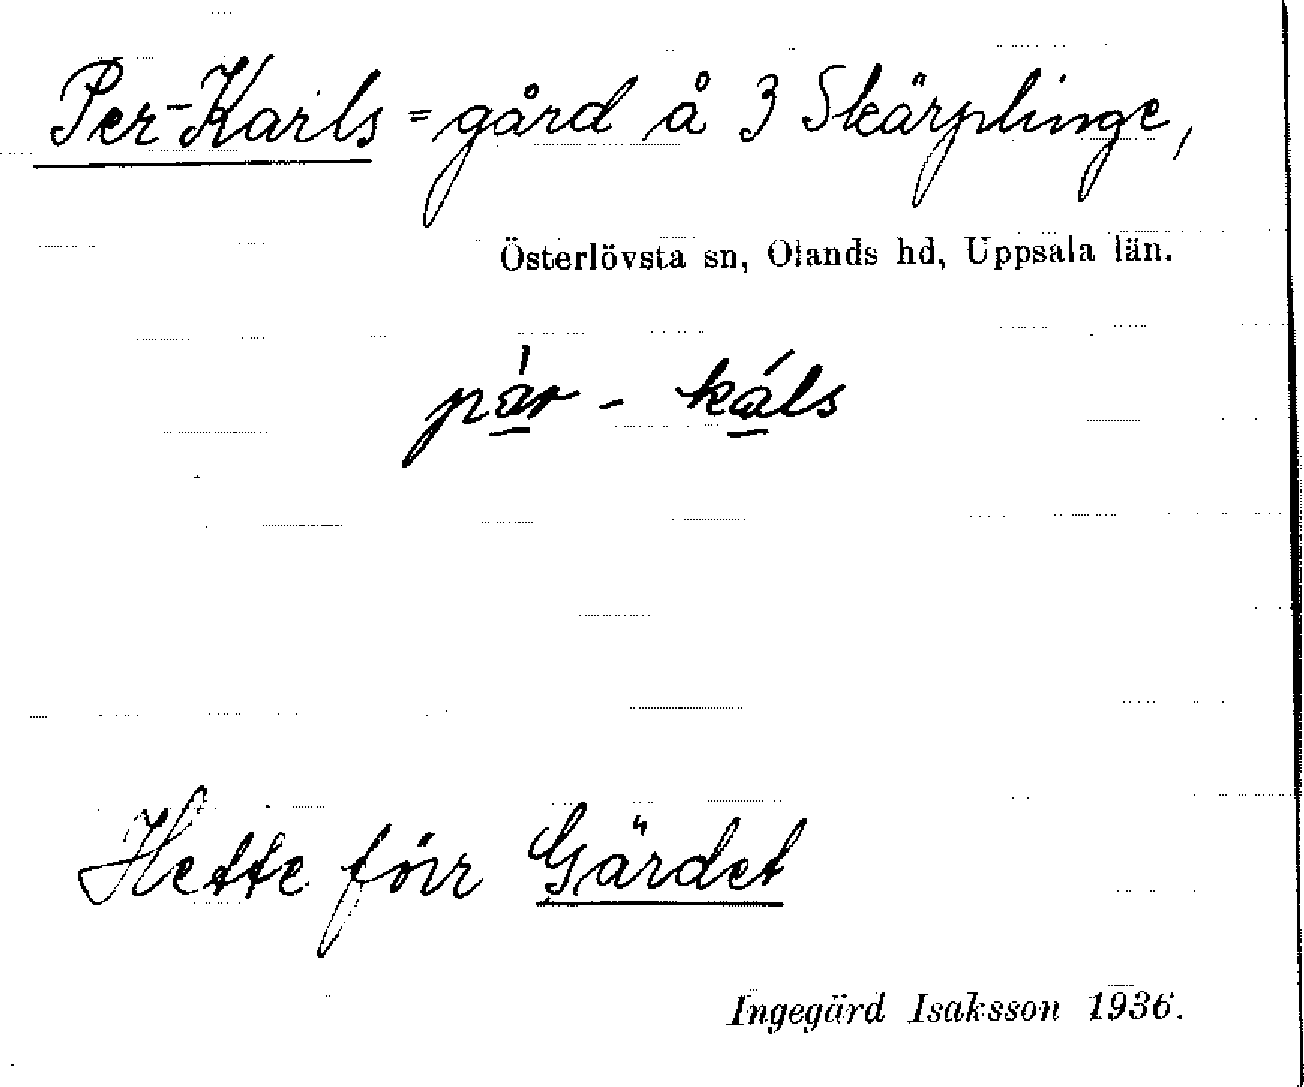 Per-Karls = gård å 3 Skärplinge,
Österlövsta sn, Olands hd, Uppsala län.
pär - káls
Hette förr Gärdet
Ingegärd Isaksson 1936.